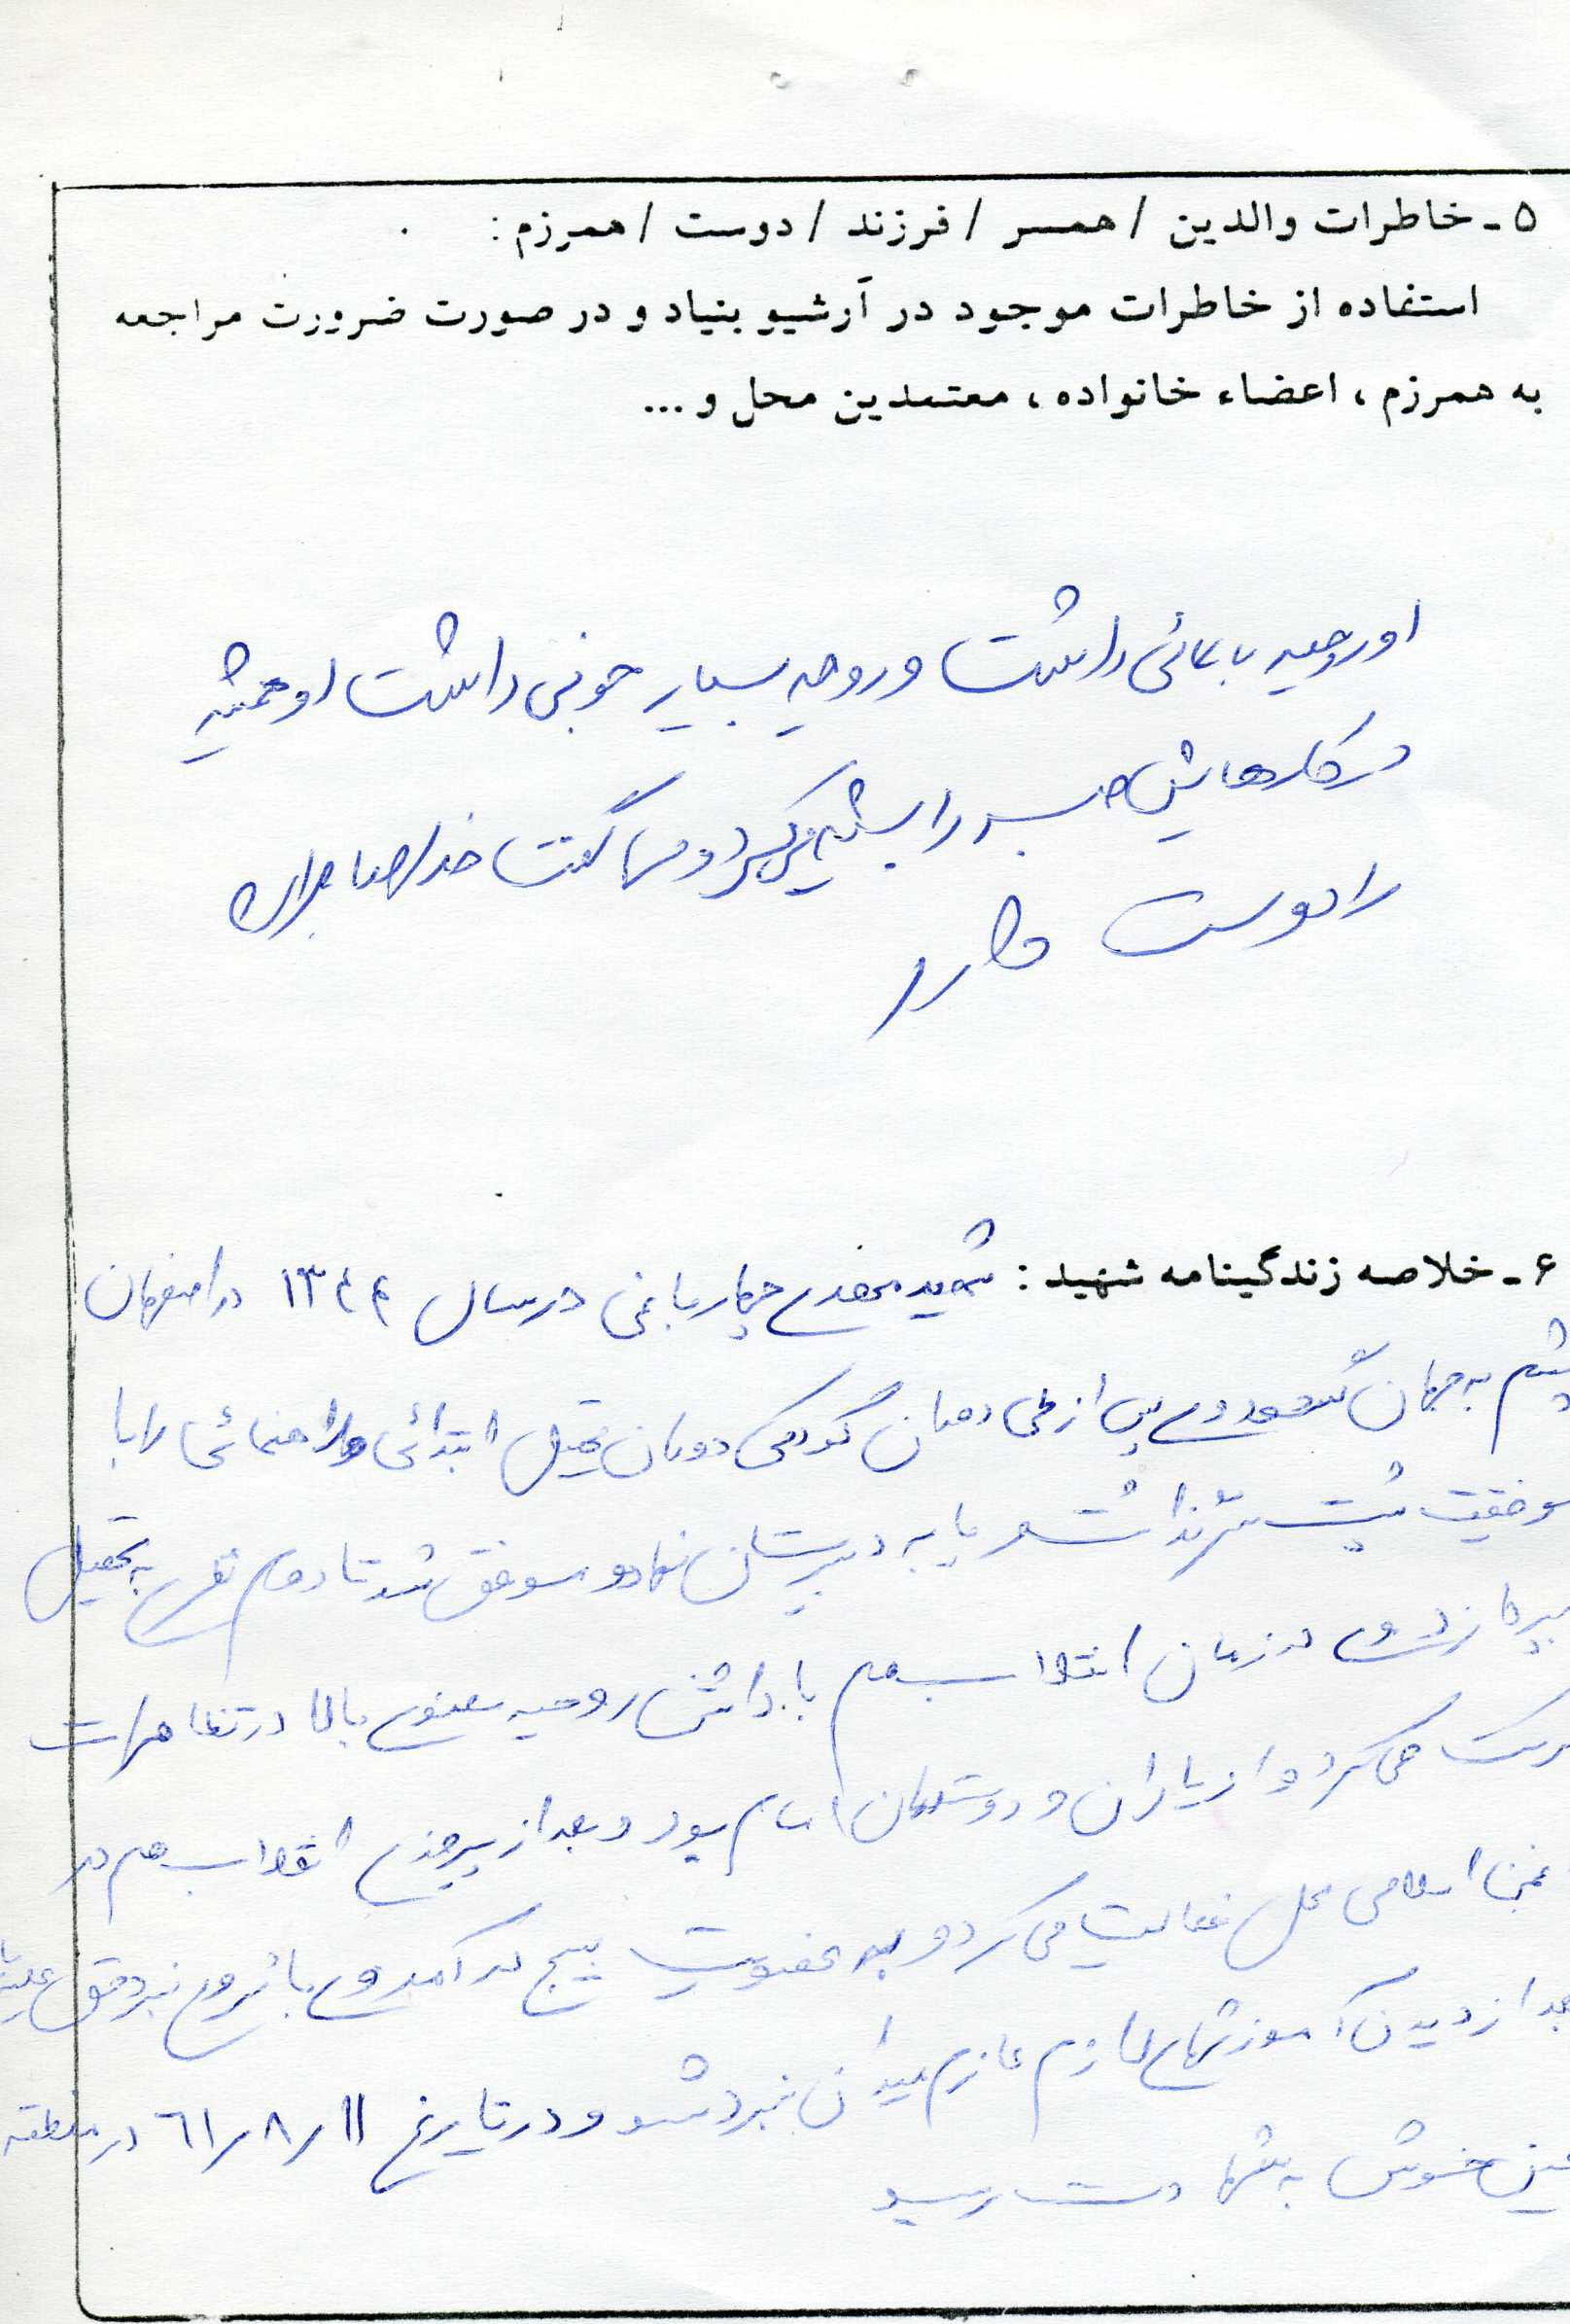 ۵ - خاطرات والدین / همسر / فرزند / دوست / همرزم :
استفاده از خاطرات موجود در آرشیو بنیاد و در صورت ضرورت مراجعه
به همرزم ، اعضاء خانواده ، معتمدین محل و ...
او روحیه بابمانی داشت و روحیه بسیار خوبی داشت او همیشه
در کارهایش صبر را پیشه می کرد و می گفت خدا صابران
را دوست دارد
۶ - خلاصه زندگینامه شهید : شهید مهدی چهارباغی در سال ۱۳۴۴ در اصفهان
چشم به جهان گشود وی پس از طی دوران کودکی دوران تحصیل ابتدائی و راهنمائی را با
موفقیت پشت سر گذاشت و پا به دبیرستان نهاد و موفق شد تا دوم نظری به تحصیل
بپردازد وی در زمان انقلاب هم با داشتن روحیه معنوی بالا در تظاهرات
شرکت می کرد و از یاران و دوستان امام بود و بعد از پیروزی انقلاب هم در
انجمن اسلامی محل فعالیت می کرد و به عضویت بسیج در آمد وی با شروع نبرد حق علیه با
بعد از دیدن آموزشهای لازم عازم میدان نبرد شد و در تاریخ ۶۱/۸/۱۱ در منطقه
عین خوش به شهادت رسید